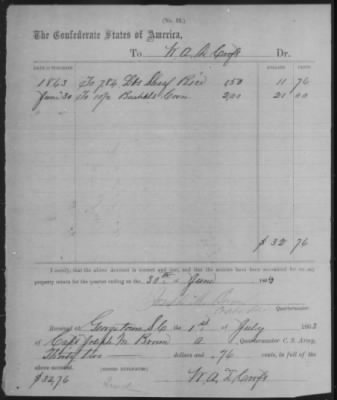 (No. 22.)
The Confederate States of America,
To W. A. Croft Dr.
DATE OF PURCHASE. DOLLARS CENTS
1863 To 784 lbs Rice 150 11 76
June 30 To 10½ Bushels Corn 200 21 00
$ 32 76
I certify, that the above account is correct and just, and that the articles have been accounted for on my
property return for the quarter ending on the 30th of June 1863
Quartermaster
Received at Georgetown S.C. the 1st of July 1863
of Capt Joseph M. Brown a Quartermaster C. S. Army,
Thirty two dollars and 76 cents, in full of the
above account.
$32.76 (SIGNED DUPLICATES)
W. A. Croft